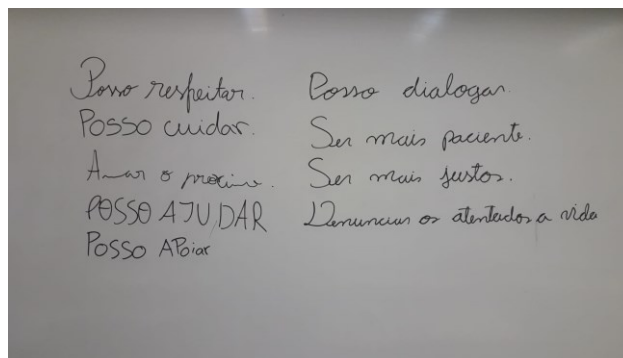 Posso respeitar.
Posso cuidar.
Amar o próximo.
POSSO AJUDAR
POSSO APoiar
Posso dialogar.
Ser mais paciente.
Ser mais justos.
Denunciar os atentados a vida